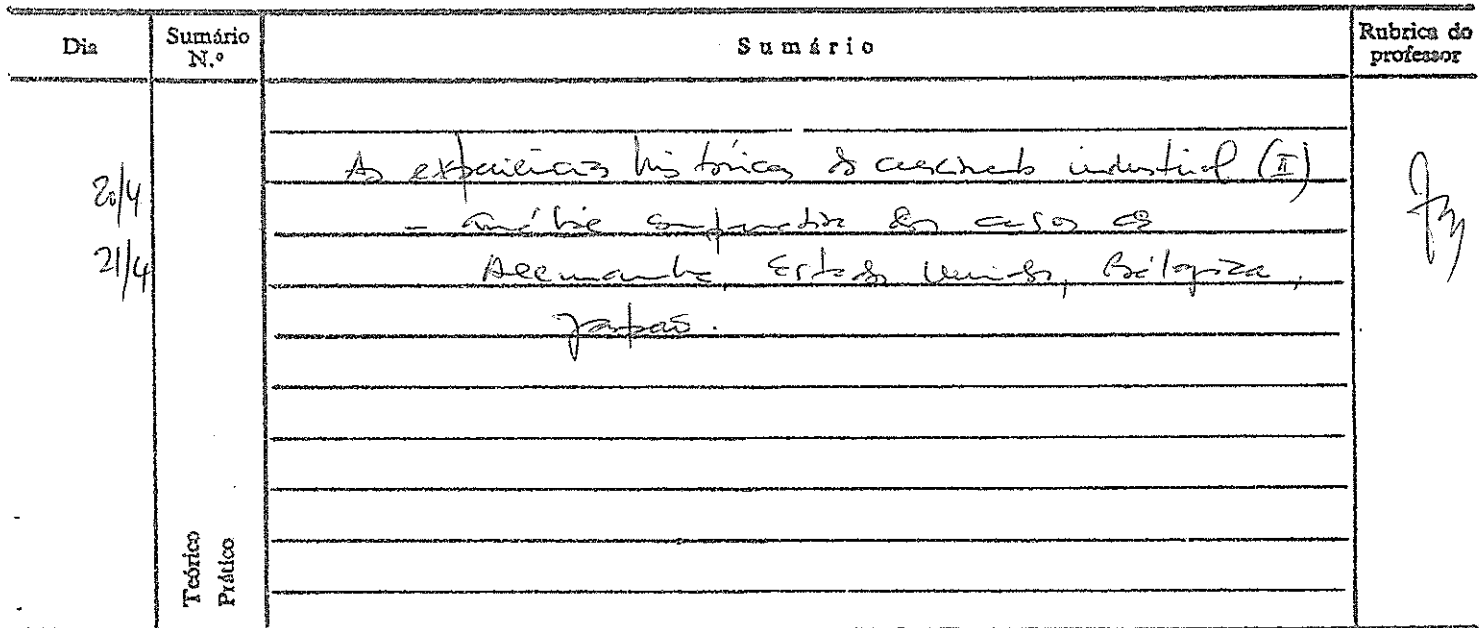 Dia
Sumário N.º
Sumário
Rubrica do professor
20/4
21/4
As experiências históricas de crescimento industrial (II)
- análise comparativa dos casos da
Alemanha, Estados Unidos, Bélgica,
Japão.
Teórico
Prático